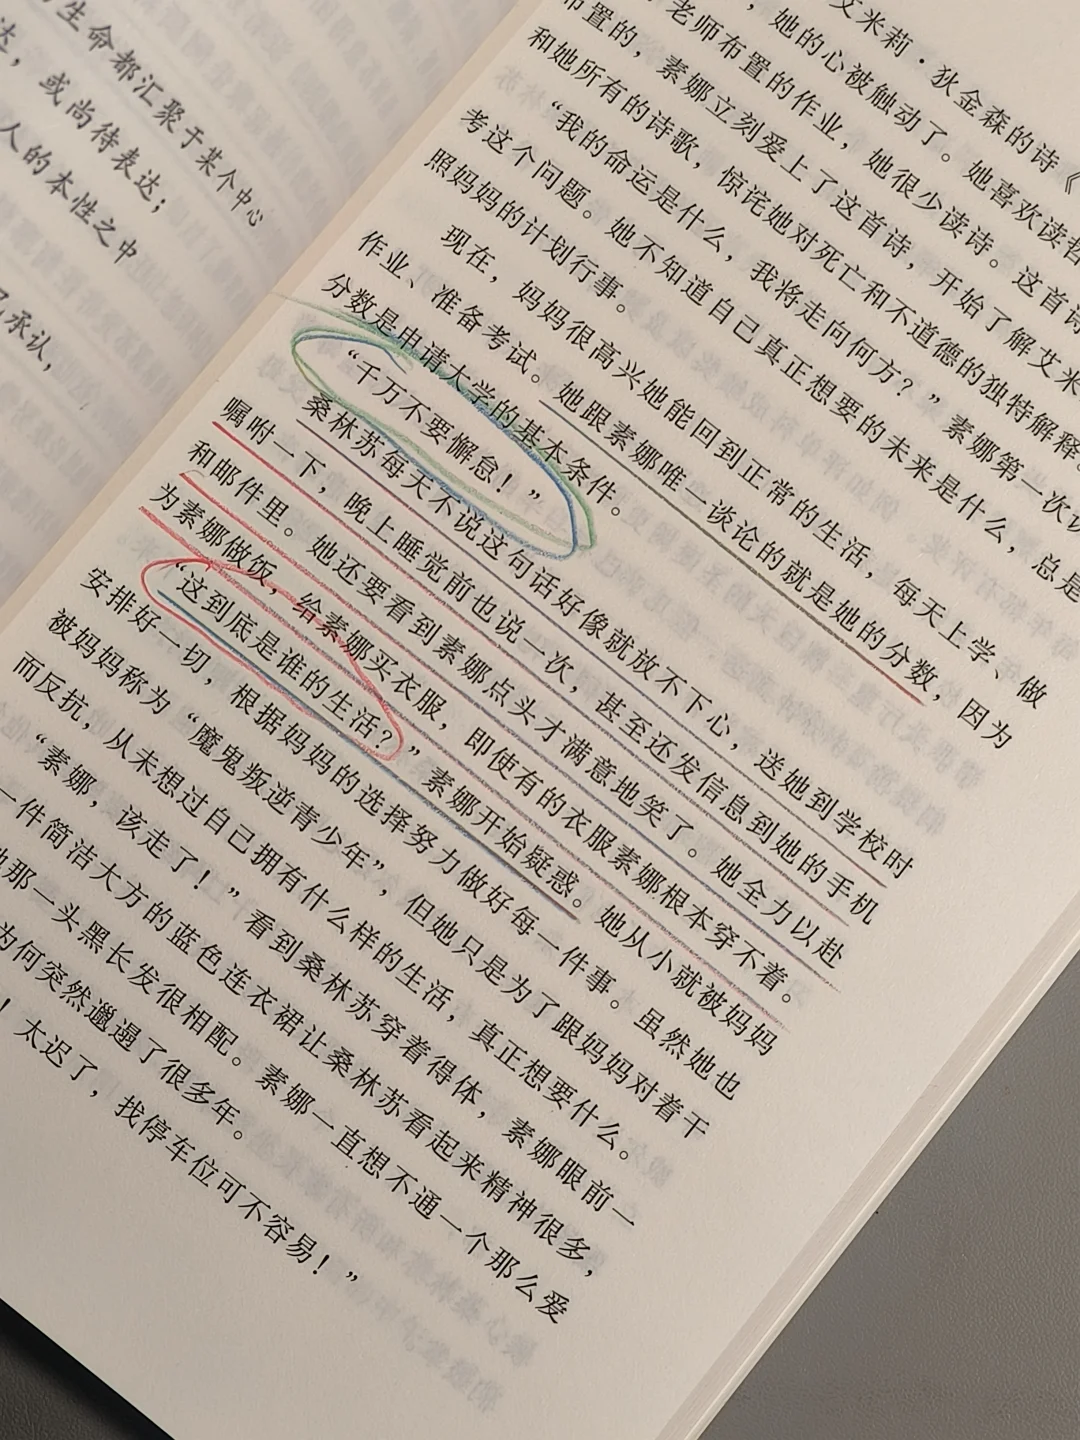 生命都汇聚于某个中心
达，或尚待表达；
人的本性之中
承认，
艾米莉·狄金森的诗《
，她的心被触动了。她喜欢读哲
老师布置的作业，她很少读诗。这首诗
布置的，素娜立刻爱上了这首诗，开始了解艾米
和她所有的诗歌，惊诧她对死亡和不道德的独特解释。
“我的命运是什么，我将走向何方？”素娜第一次
考这个问题。她不知道自己真正想要的未来是什么，总是
照妈妈的计划行事。
现在，妈妈很高兴她能回到正常的生活，每天上学、做
作业、准备考试。她跟素娜唯一谈论的就是她的分数，因为
分数是申请大学的基本条件。
“千万不要懈怠！”
桑林苏每天不说这句话好像就放不下心，送她到学校时
嘱咐一下，晚上睡觉前也说一次，甚至还发信息到她的手机
和邮件里。她还要看到素娜点头才满意地笑了。她全力以赴
为素娜做饭，给素娜买衣服，即使有的衣服素娜根本穿不着。
“这到底是谁的生活？”素娜开始疑惑。她从小就被妈妈
安排好一切，根据妈妈的选择努力做好每一件事。虽然她也
被妈妈称为“魔鬼叛逆青少年”，但她只是为了跟妈妈对着干
而反抗，从未想过自己拥有什么样的生活，真正想要什么。
“素娜，该走了！”看到桑林苏穿着得体，素娜眼前一
一件简洁大方的蓝色连衣裙让桑林苏看起来精神很多，
那一头黑长发很相配。素娜一直想不通一个那么爱
为何突然邋遢了很多年。
！太迟了，找停车位可不容易！”